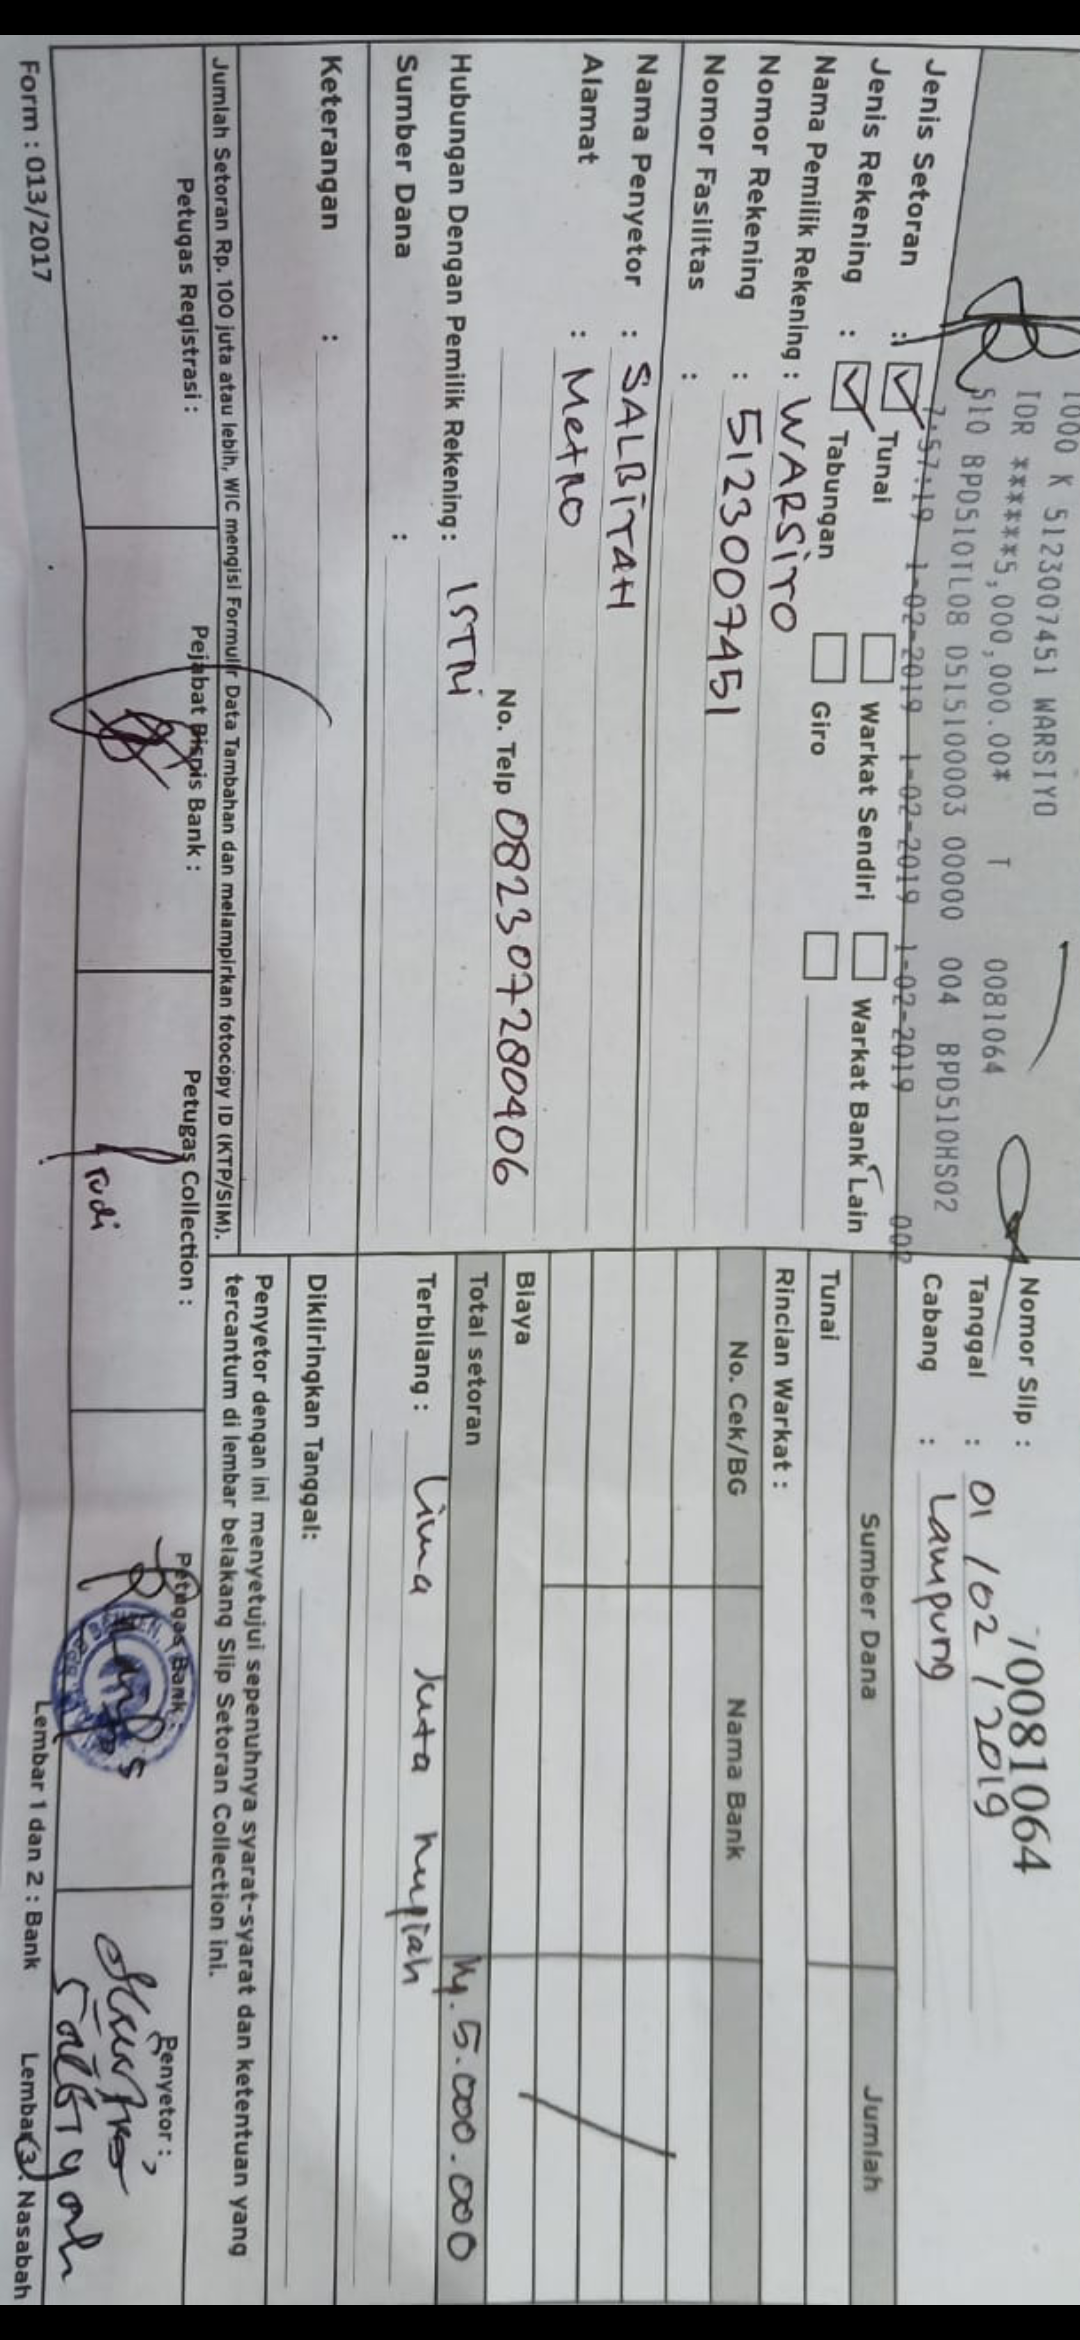 1000 K 5123007451 WARSIYO
IDR ******5,000,000.00* T 0081064
510 BPD510TL08 0515100003 00000 004 BPD510HS02
7:57:19 1-02-2019 1-02-2019 1-02-2019 002
Nomor Slip : 70081064
Tanggal : 01 / 02 / 2019
Cabang : Lampung
Jenis Setoran : Tunai Warkat Sendiri Warkat Bank Lain
Jenis Rekening : Tabungan Giro
Nama Pemilik Rekening : WARSiTO
Nomor Rekening : 5123007451
Nomor Fasilitas :
Nama Penyetor : SALBiTAH
Alamat : Metro
No. Telp 082307280406
Hubungan Dengan Pemilik Rekening : ISTRi
Sumber Dana :
Keterangan :
Sumber Dana Jumlah
Tunai
Rincian Warkat :
No. Cek/BG Nama Bank
Biaya
Total setoran Rp. 5.000.000
Terbilang : Lima Juta Rupiah
Dikliringkan Tanggal:
Jumlah Setoran Rp. 100 juta atau lebih, WIC mengisi Formulir Data Tambahan dan melampirkan fotocopy ID (KTP/SIM).
Penyetor dengan ini menyetujui sepenuhnya syarat-syarat dan ketentuan yang
tercantum di lembar belakang Slip Setoran Collection ini.
Petugas Registrasi :
Pejabat Bisnis Bank :
Petugas Collection :
Rudi
Petugas Bank :
Penyetor :
Salbiyah
Form : 013/2017
Lembar 1 dan 2 : Bank Lembar 3 : Nasabah